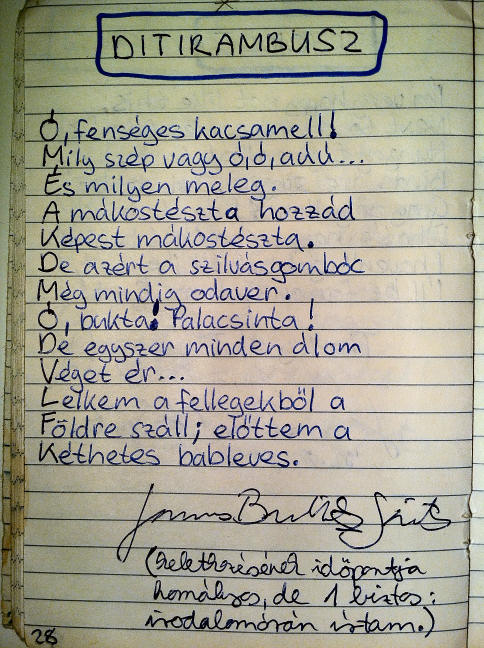 DITIRAMBUSZ
Ó, fenséges kacsamell!
Mily szép vagy ó, ó, add...
És milyen meleg.
A mákostészta hozzád
Képest mákostészta.
De azért a szilvásgombóc
Még mindig odaver.
Ó, bukta! Palacsinta!
De egyszer minden álom
Véget ér...
Lelkem a fellegekből a
Földre száll; előttem a
Kéthetes bableves.
(keletkezésének időpontja
homályos, de 1 biztos:
irodalomórán írtam.)
28